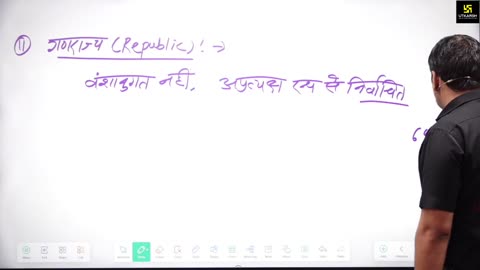 UTKARSH
(11) गणराज्य (Republic) : →
वंशानुगत नहीं, अप्रत्यक्ष रूप से निर्वाचित